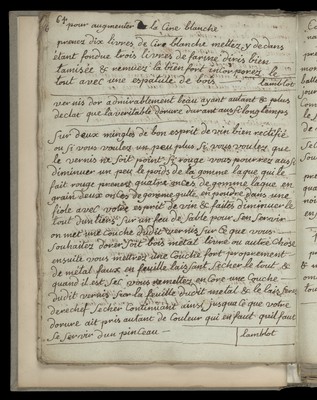 64
pour augmenter la Cire blanche
prenez dix livres de Cire blanche mettez y dedans
etant fondue trois livres de farine bien
tamisée & remuez la bien pour incorporez le
tout avec une espatule de bois Lamblot
vernis dor admirablement beau ayant autant & plus
declat que la veritable dorure durant aussi longtemps
Sur deux mingles de bon esprit de vin bien rectifié
ou si vous voulez un peu plus si vous voulez que
le vernis ne soit point si rouge vous pourrez aussi
diminuer un peu le poids de la gomme laque qui le
fait rouge prenez quatre onces de gomme laque en
grain deux onces de gomme gutte en poudre dans une
fiole avec votre esprit de vin & faites diminuer le
tout dun tiers sur un feu de sable pour sen servir
on met une Couche dudit vernis sur Ce que vous
Souhaitez dorer soit bois metal livre ou autre Chose
ensuite vous mettrez une Couche fort proprement
de metal faux en feuille laissant secher le tout, &
quand il est sec vous remettez encore une Couche
dudit vernis sur la feuille dudit metal & le laissez
derechef secher Continuant ainsi jusqua Ce que votre
dorure ait pris autant de Couleur qui en faut quil faut
se servir dun pinceau — Lamblot